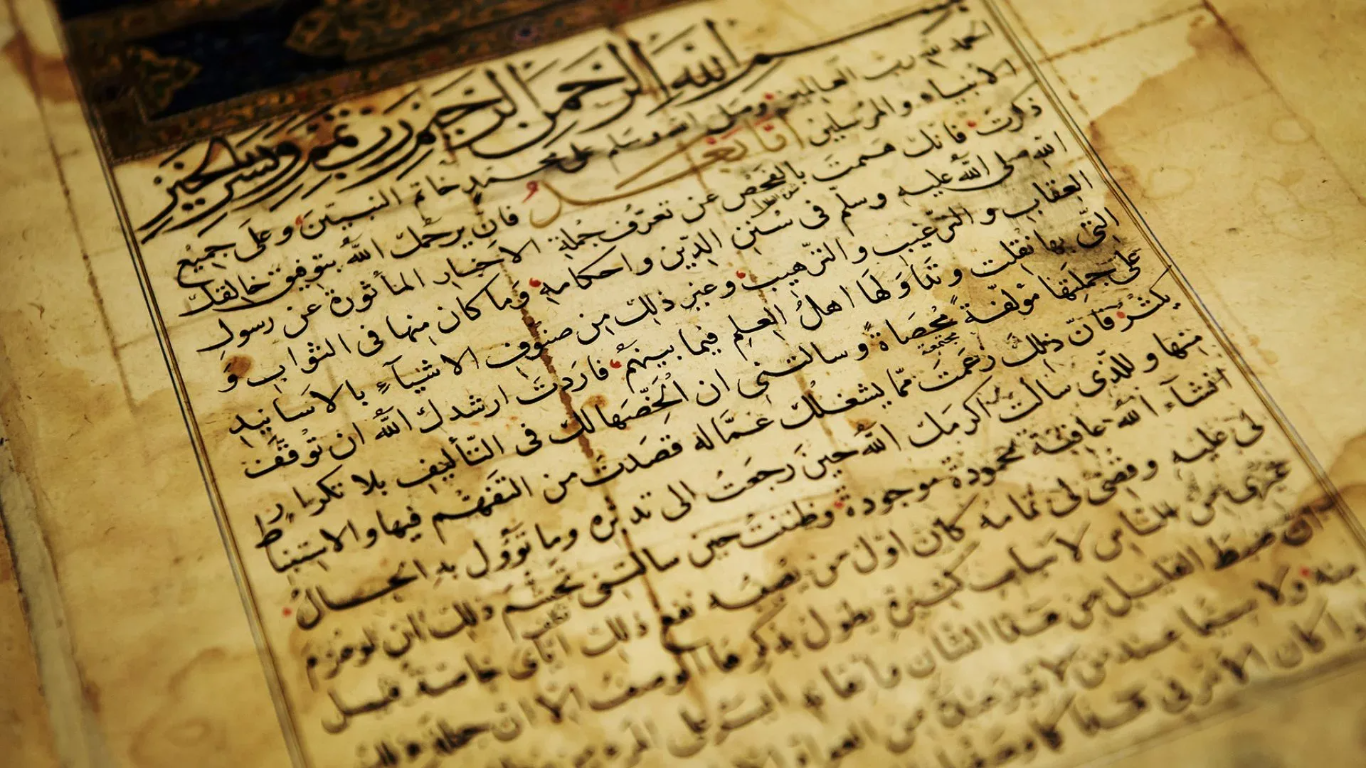 بسم الله الرحمن الرحيم رب تمم ويسر بالخير
الحمد لله رب العالمين وصلى الله وسلم على محمد خاتم النبيين وعلى جميع
الانبياء والمرسلين اما بعد فانك يرحمك الله بتوفيق خالقك
ذكرت فانك هممت بالفحص عن تعرف جملة الاخبار المأثورة عن رسول
الله صلى الله عليه وسلم فى سنن الدين واحكامه وما كان منها فى الثواب و
العقاب والترغيب والترهيب وغير ذلك من صنوف الاشياء بالاسانيد
التى بها نقلت وتداولها اهل العلم فيما بينهم فاردت ارشدك الله ان توقف
على جملتها مؤلفة محصاة وسالتنى ان الخصها لك فى التأليف بلا تكرار
يكثر فان ذلك زعمت مما يشغلك عما له قصدت من التفهم فيها والاستنباط
منها وللذى سالت اكرمك الله حين رجعت الى تدبره وما تؤول به الحال
انشاء الله عاقبة محمودة موجودة وظننت حين سالتنى تجشم ذلك ان لو عزم
لى عليه وقضى لى تمامه كان اول من يصيبه نفع ذلك اياى خاصة قبل
غيرى من الناس لاسباب كثيرة يطول بذكرها الوصف الا ان جملة ذلك
ان ضبط القليل من هذا الشان واتقانه ايسر على المرء من
منه ولا سيما عند من لا تمييز عنده من العوام